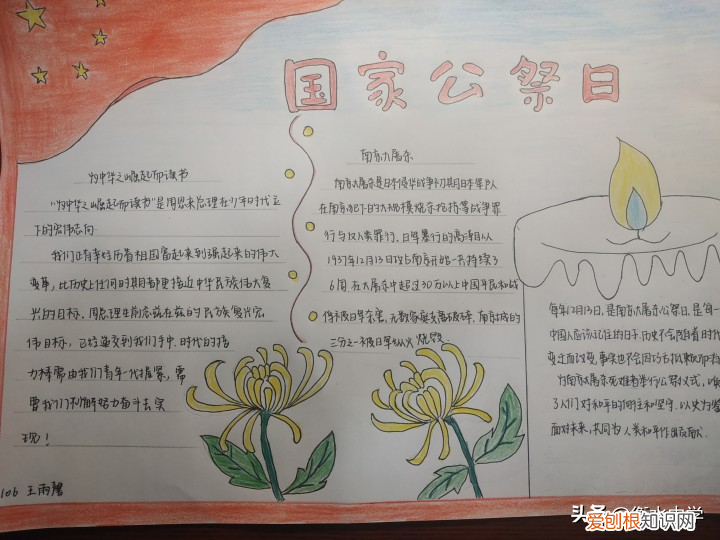 国家公祭日
为中华之崛起而读书
"为中华之崛起而读书"是周恩来总理在少年时代立
下的宏伟志向.
我们正有幸好历着祖国富起来到强起来的伟大
变革,比历史上任何时期都更接近中华民族伟大复
兴的目标,周总理生前念兹在兹的民族复兴宏
伟目标,已经递交到我们手中.时代的接
力棒需由我们青年一代握紧,需
要我们不懈努力奋斗去实
现!
106 王雨
南京大屠杀
南京大屠杀是日本侵华战争初期日本军队
在南京犯下的大规模屠杀抢掠等战争罪
行与反人类罪行.日军暴行的高潮从
1937年12月13日攻占南京开始一共持续了
6周,在大屠杀中超过30万以上中国平民和战
俘被日军杀害,无数家庭支离破碎,南京城的
三分之一被日军纵火烧毁.
每年12月13日,是南京大屠杀公祭日,是每一
中国人应该记住的日子.历史不会随着时代
变迁而改变,事实也不会因巧舌抵赖而
为南京大屠杀死难者举行公祭仪式,
了人们对和平的向往和坚守.以史为鉴
面对未来,共同为人类和平作出贡献.
头条@衡水中学
爱刨根知识网